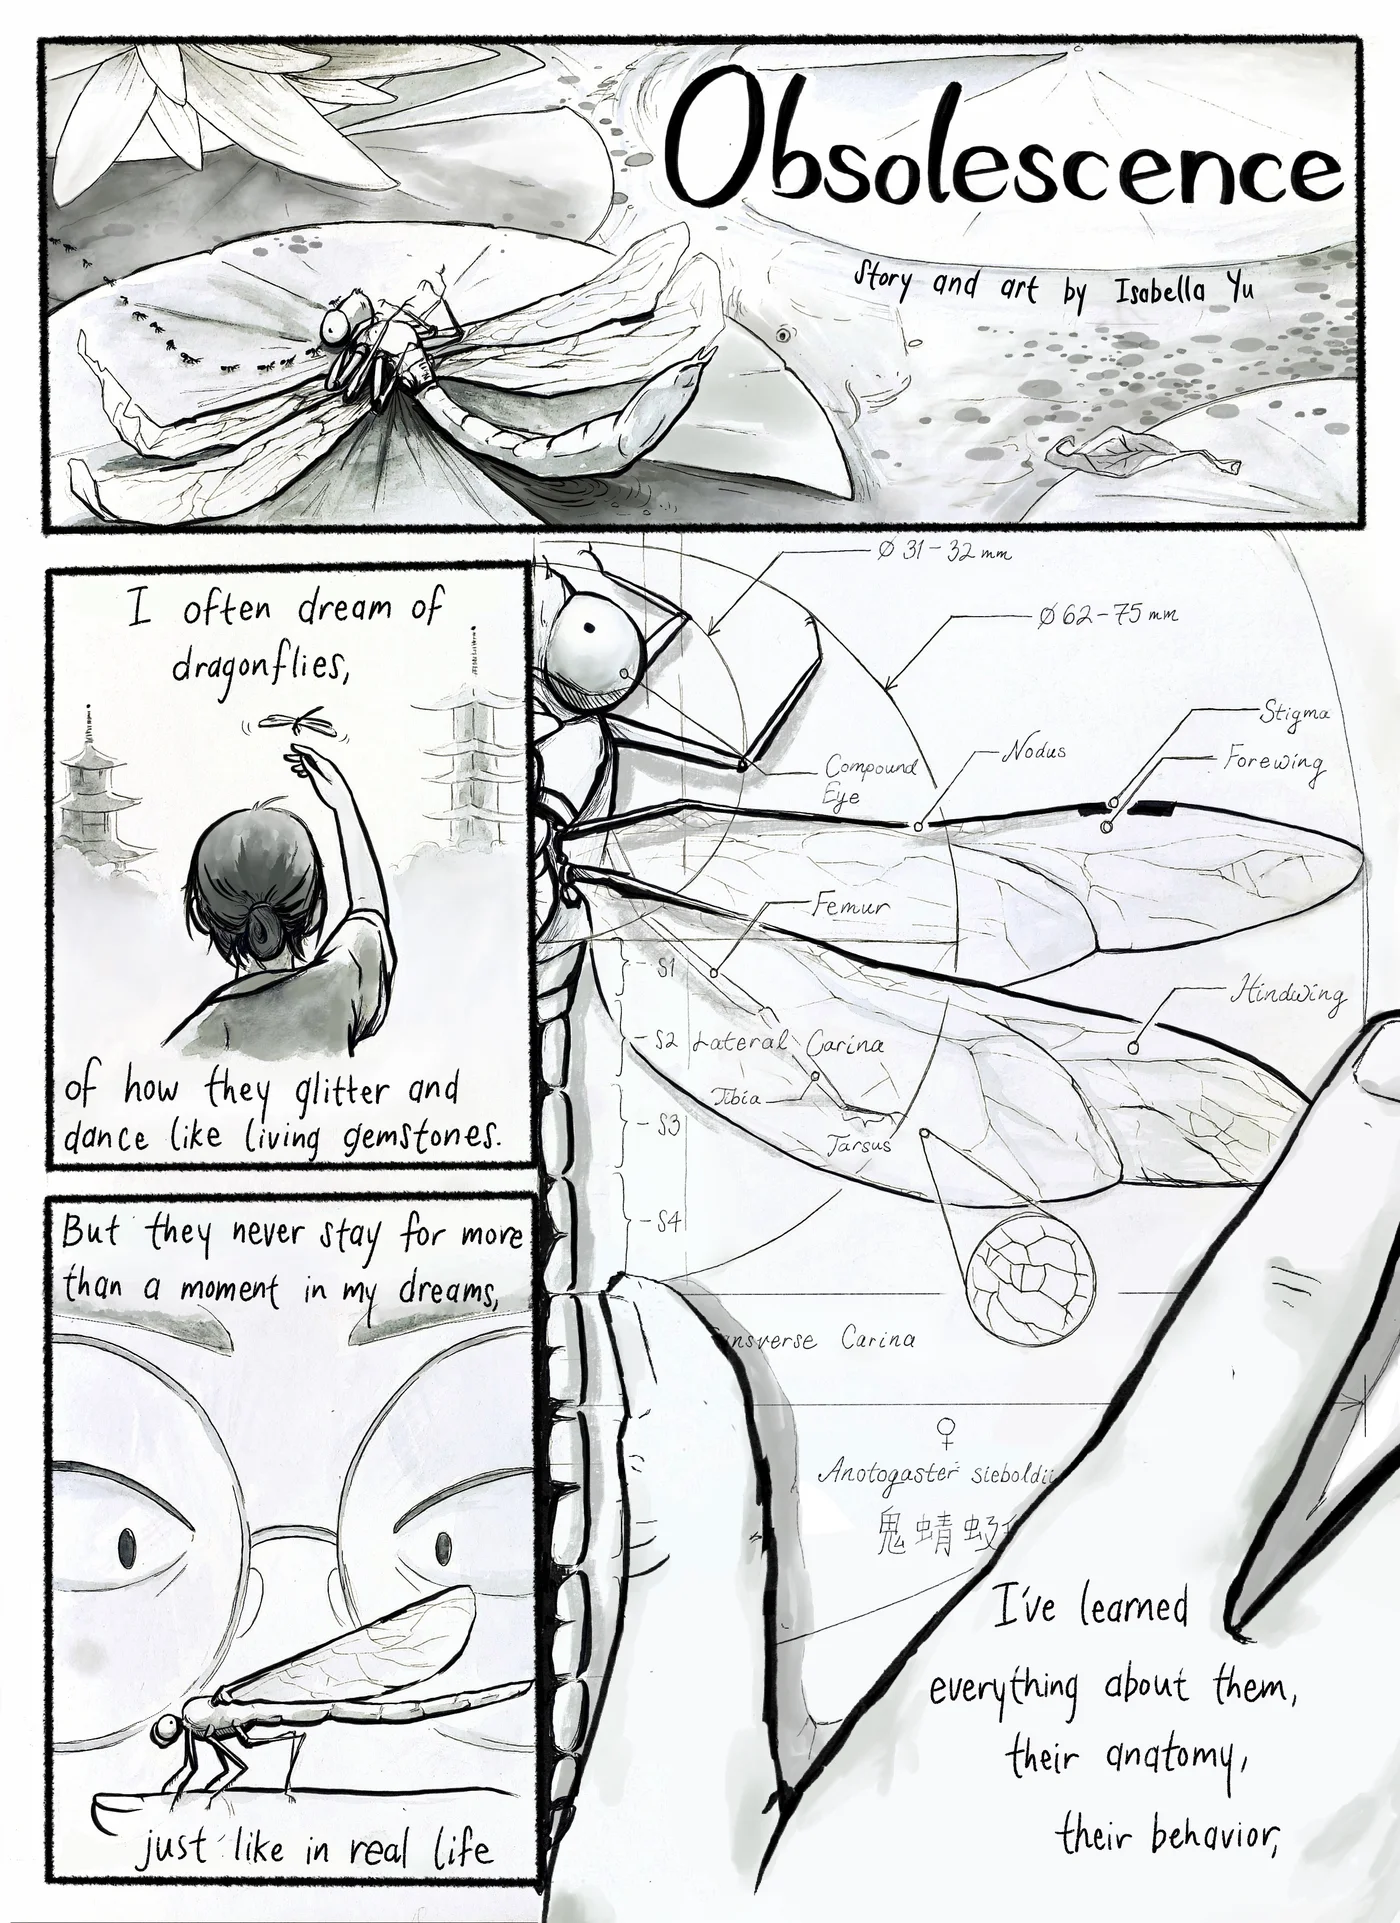 Obsolescence
Story and art by Isabella Yu
I often dream of
dragonflies,
of how they glitter and
dance like living gemstones.
But they never stay for more
than a moment in my dreams,
just like in real life
Ø 31-32 mm
Ø 62-75 mm
Stigma
Nodus
Forewing
Compound
Eye
Femur
S1
Hindwing
S2
Lateral Carina
Tibia
S3
Tarsus
S4
Carina
♀
Anotogaster sieboldii
鬼蜻
I've learned
everything about them,
their anatomy,
their behavior,